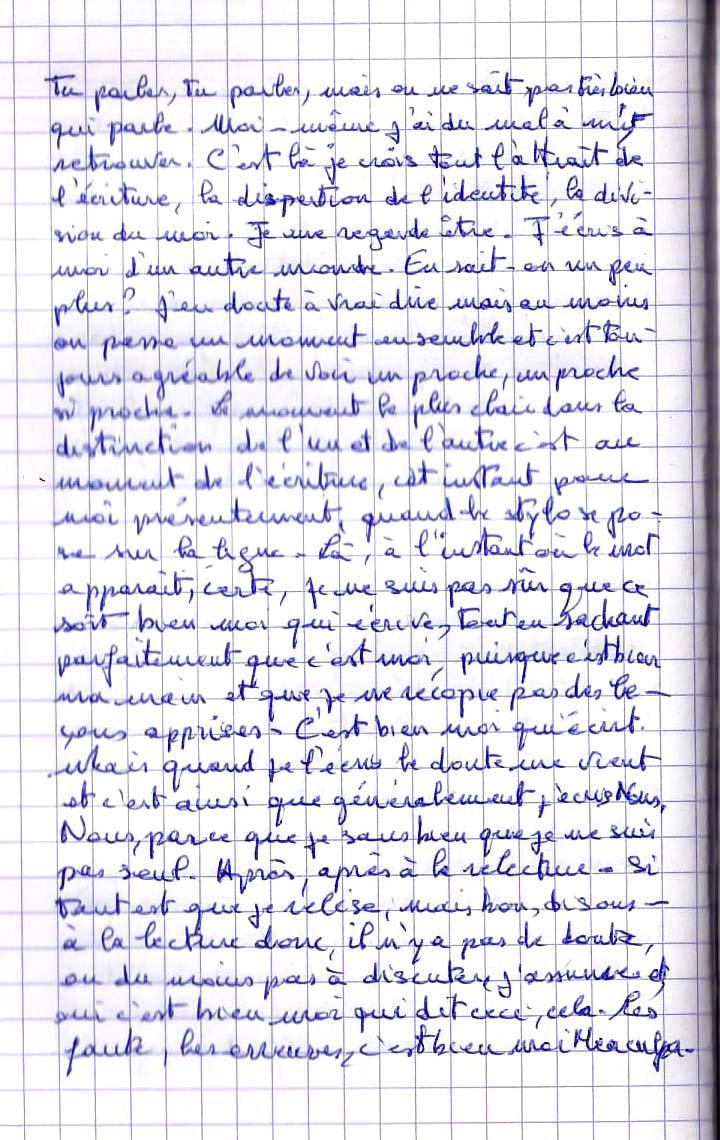 Tu parles, Tu parles, mais on ne sait pas très bien
qui parle. Moi-même j'ai du mal à m'y
retrouver. C'est là je crois tout l'attrait de
l'écriture, la dispertion de l'identité, la divi-
sion du moi. Je me regarde être. J'écris à
moi d'un autre monde. En sait-on un peu
plus? J'en doute à vrai dire mais au moins
on passe un moment ensemble et c'est tou-
jours agréable de voir un proche, un proche
si proche. Le moment le plus clair dans la
distinction de l'un et de l'autre c'est au
moment de l'écriture, cet instant pour
moi présentement, quand le stylo se po-
se sur la ligne. Là, à l'instant où le mot
apparait, certe, je ne suis pas sûr que ce
soit bien moi qui écrive, tout en sachant
parfaitement que c'est moi, puisque c'est bien
ma main et que je ne recopie pas des le-
çons apprises. C'est bien moi qui écrit.
Mais quand je l'écris le doute me vient
et c'est ainsi que généralement j'écris Nous,
Nous, parce que je sans bien que je ne suis
pas seul. Après, après à la relecture - si
tant est que je relise, mais bon, disons -
à la lecture donc, il n'y a pas de doute,
ou du moins pas à discuter, j'assume et
oui c'est bien moi qui dit ceci, cela. Les
faute, les erreures, c'est bien moi Mea culpa.